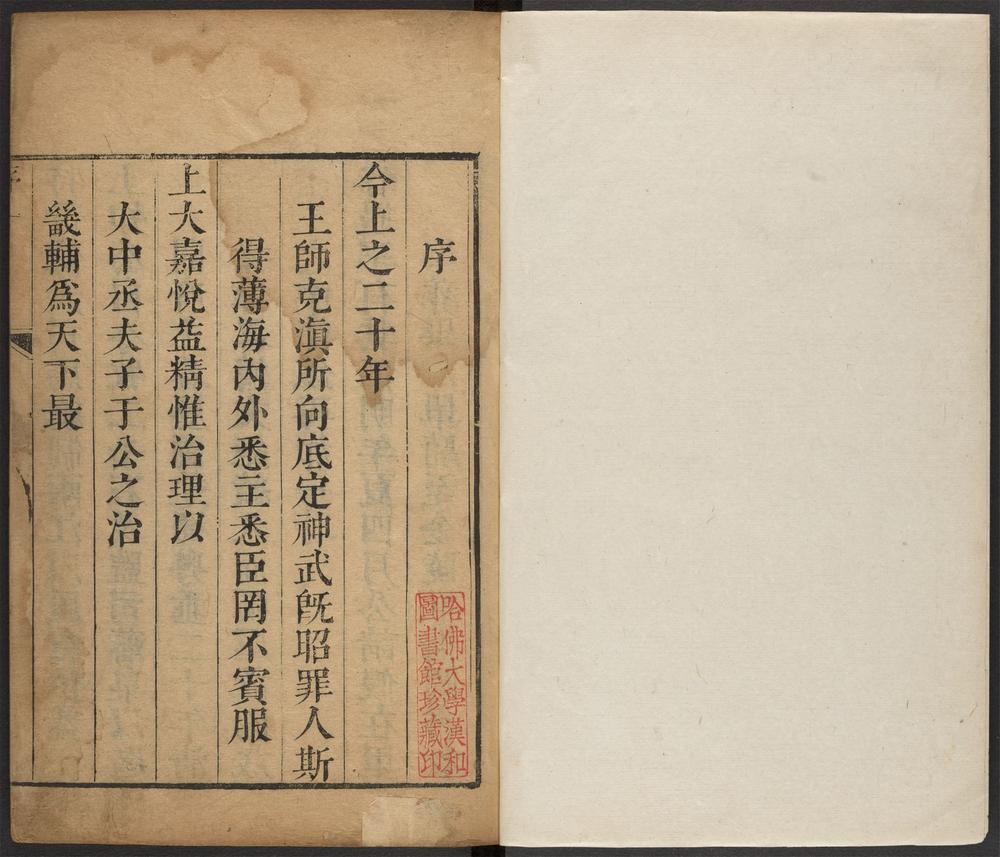 序
今上之二十年
王師克滇所向底定神武旣昭罪人斯
得薄海內外悉主悉臣罔不賓服
上大嘉悅益精惟治理以
大中丞夫子于公之治
畿輔爲天下最
哈佛大學漢和
圖書館珍藏印